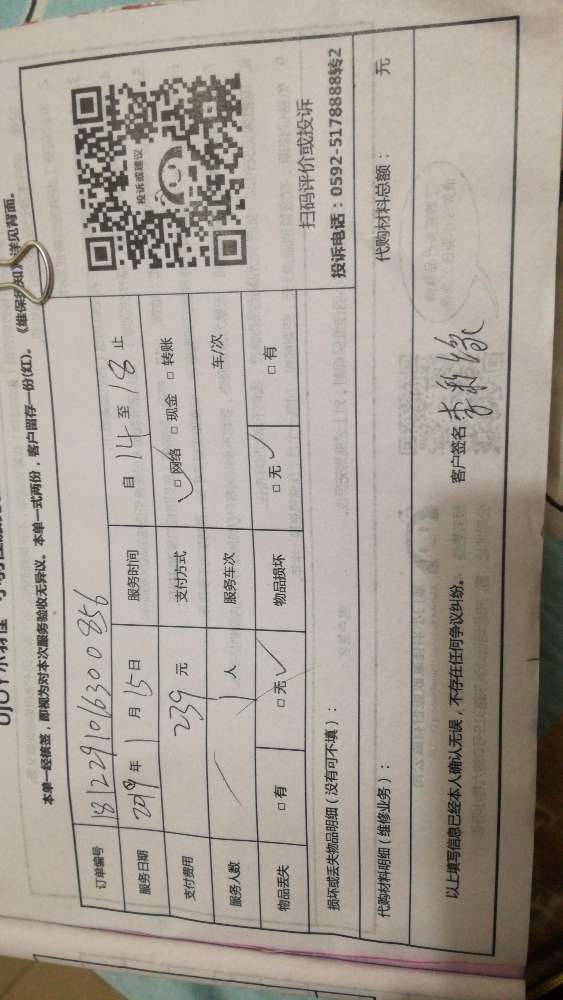 本单一经核签，即视为对本次服务验收无异议。本单一式两份，客户留存一份(红)。《维保须知》详见背面。
订单编号 181229106300856 服务时间 自 14 至 18 止
服务日期 2019 年 1 月 15 日 支付方式 ☑ 网络 □ 现金 □ 转账
支付费用 239 元 服务车次 车/次
服务人数 1 人 物品损坏 □ 无 ✓ □ 有
物品丢失 □ 有 □ 无 ✓
投诉或建议
扫码评价或投诉
投诉电话：0592-5178888转2
损坏或丢失物品明细（没有可不填）：
代购材料明细（维修业务）：
代购材料总额： 元
以上填写信息已经本人确认无误，不存在任何争议纠纷。
客户签名